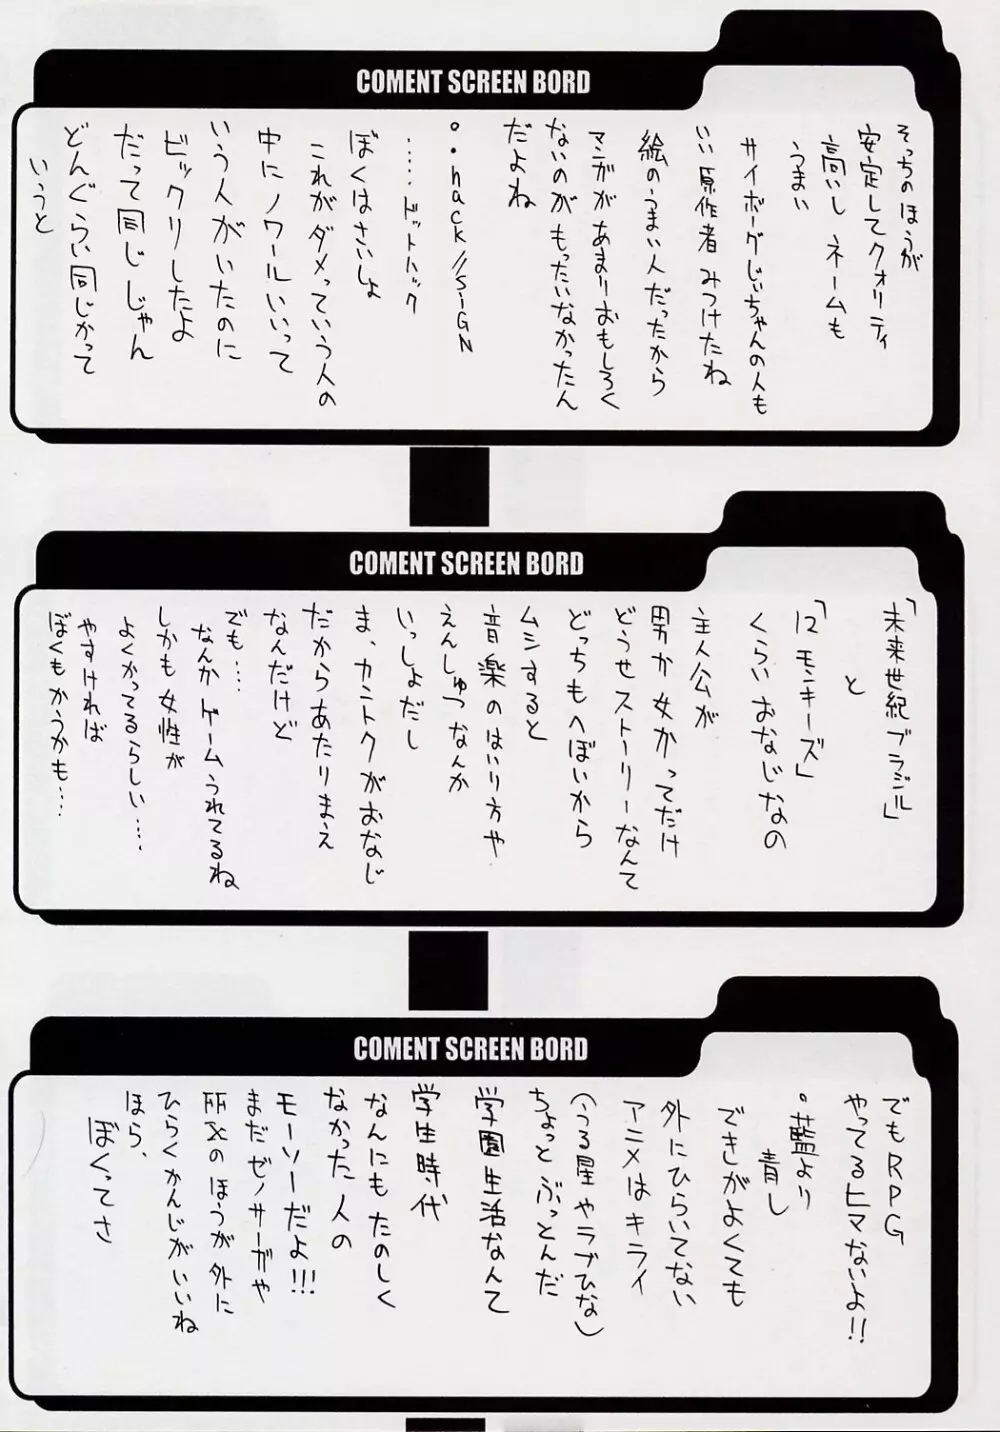 COMENT SCREEN BORD
そっちのほうが
安定してクォリティ
高いし ネームも
うまい
サイボーグじぃちゃんの人も
いい原作者 みつけたね
絵のうまい人だったから
マンガがあまりおもしろく
ないのがもったいなかったん
だよね
。.hack//SiGN
…… ドットハック
ぼくはさいしょ
これがダメっていう人の
中にノワールいいって
いう人がいたのに
ビックリしたよ
だって同じじゃん
どんぐらい同じかって
いうと
COMENT SCREEN BORD
「未来世紀ブラジル」
と
「12モンキーズ」
くらい おなじなの
主人公が
男か女かってだけ
どうせストーリーなんて
どっちもへぼいから
ムシすると
音楽のはいり方や
えんしゅつなんか
いっしょだし
ま、カントクがおなじ
だからあたりまえ
なんだけど
でも…
なんかゲームうれてるね
しかも女性が
よくかってるらしい….
やすければ
ぼくもかうかも…
COMENT SCREEN BORD
でもRPG
やってるヒマないよ!!
。藍より
青し
できがよくても
外にひらいてない
アニメはキライ
(うる星やラブひな)
ちょっとぶっとんだ
学園生活なんて
学生時代
なんにもたのしく
なかった人の
モーソーだよ!!!
まだゼノサーガや
のほうが外に
ひらくかんじがいいね
ほら、
ぼくってさ